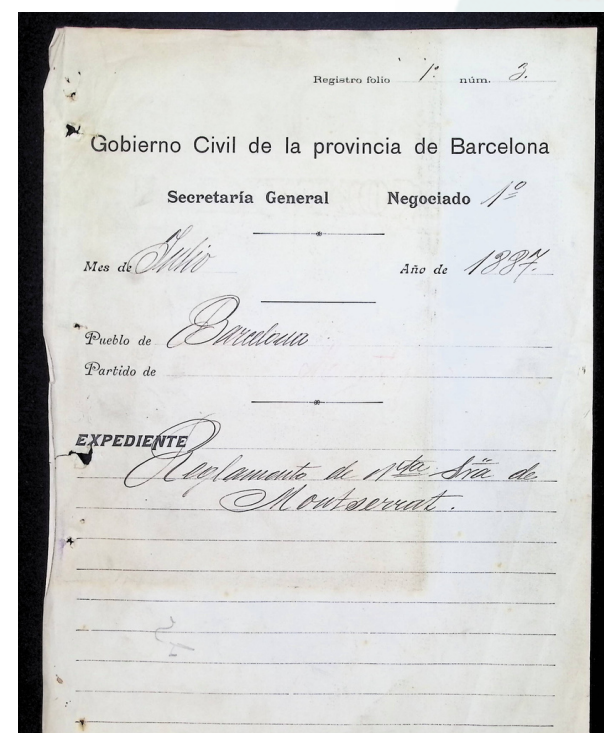 Registro folio 1º núm. 3.
Gobierno Civil de la provincia de Barcelona
Secretaría General Negociado 1º
Mes de Julio Año de 1887.
Pueblo de Barcelona
Partido de
EXPEDIENTE
Reglamento de Nta Sra de
Montserrat.